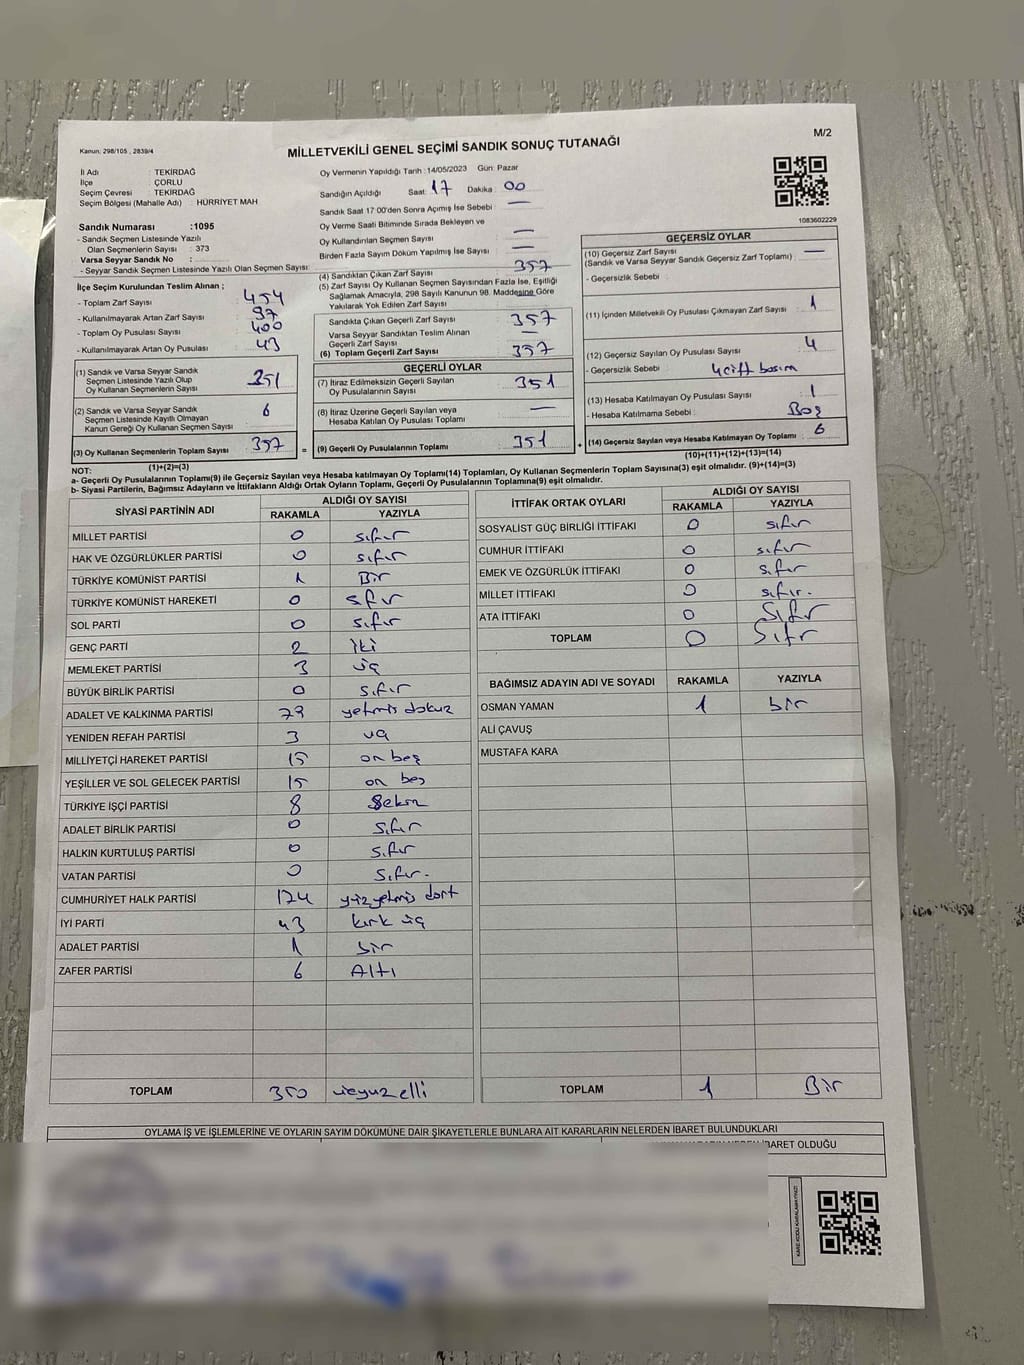 M/2
Kanun: 298/105 , 2839/4
MİLLETVEKİLİ GENEL SEÇİMİ SANDIK SONUÇ TUTANAĞI
İl Adı : TEKİRDAĞ
İlçe : ÇORLU
Seçim Çevresi : TEKİRDAĞ
Seçim Bölgesi (Mahalle Adı) : HÜRRİYET MAH
Oy Vermenin Yapıldığı Tarih : 14/05/2023 Gün: Pazar
Sandığın Açıldığı Saat: 17 Dakika: 00
Sandık Saat 17 00'den Sonra Açılmış İse Sebebi : —
Oy Verme Saati Bitiminde Sırada Bekleyen ve
Oy Kullandırılan Seçmen Sayısı —
Birden Fazla Sayım Döküm Yapılmış İse Sebebi —
1083602229
Sandık Numarası :1095
- Sandık Seçmen Listesinde Yazılı
Olan Seçmenlerin Sayısı : 373
Varsa Seyyar Sandık No :
- Seyyar Sandık Seçmen Listesinde Yazılı Olan Seçmen Sayısı:
İlçe Seçim Kurulundan Teslim Alınan ;
- Toplam Zarf Sayısı : 454
- Kullanılmayarak Artan Zarf Sayısı : 97
- Toplam Oy Pusulası Sayısı : 400
- Kullanılmayarak Artan Oy Pusulası : 43
(1) Sandık ve Varsa Seyyar Sandık
Seçmen Listesinde Yazılı Olup
Oy Kullanan Seçmenlerin Sayısı : 351
(2) Sandık ve Varsa Seyyar Sandık
Seçmen Listesinde Kayıtlı Olmayan
Kanun Gereği Oy Kullanan Seçmen Sayısı : 6
(3) Oy Kullanan Seçmenlerin Toplam Sayısı : 357
(1)+(2)=(3)
(4) Sandıktan Çıkan Zarf Sayısı : 357
(5) Zarf Sayısı Oy Kullanan Seçmen Sayısından Fazla İse, Eşitliği
Sağlamak Amacıyla, 298 Sayılı Kanunun 98. Maddesine Göre
Yakılarak Yok Edilen Zarf Sayısı : —
Sandıkta Çıkan Geçerli Zarf Sayısı : 357
Varsa Seyyar Sandıktan Teslim Alınan
Geçerli Zarf Sayısı : —
(6) Toplam Geçerli Zarf Sayısı : 357
GEÇERLİ OYLAR
(7) İtiraz Edilmeksizin Geçerli Sayılan
Oy Pusulalarının Sayısı : 351
(8) İtiraz Üzerine Geçerli Sayılan veya
Hesaba Katılan Oy Pusulası Toplamı : —
= (9) Geçerli Oy Pusulalarının Toplamı : 351
GEÇERSİZ OYLAR
(10) Geçersiz Zarf Sayısı
(Sandık ve Varsa Seyyar Sandık Geçersiz Zarf Toplamı) : —
- Geçersizlik Sebebi :
(11) İçinden Milletvekili Oy Pusulası Çıkmayan Zarf Sayısı : 1
(12) Geçersiz Sayılan Oy Pusulası Sayısı : 4
- Geçersizlik Sebebi : 4 çift basım
(13) Hesaba Katılmayan Oy Pusulası Sayısı : 1
- Hesaba Katılmama Sebebi : Boş
+ (14) Geçersiz Sayılan veya Hesaba Katılmayan Oy Toplamı : 6
(10)+(11)+(12)+(13)=(14)
NOT:
a- Geçerli Oy Pusulalarının Toplamı(9) ile Geçersiz Sayılan veya Hesaba katılmayan Oy Toplamı(14) Toplamları, Oy Kullanan Seçmenlerin Toplam Sayısına(3) eşit olmalıdır. (9)+(14)=(3)
b- Siyasi Partilerin, Bağımsız Adayların ve İttifakların Aldığı Ortak Oyların Toplamı, Geçerli Oy Pusulalarının Toplamına(9) eşit olmalıdır.
SİYASİ PARTİNİN ADI ALDIĞI OY SAYISI
RAKAMLA YAZIYLA
MİLLET PARTİSİ 0 sıfır
HAK VE ÖZGÜRLÜKLER PARTİSİ 0 sıfır
TÜRKİYE KOMÜNİST PARTİSİ 1 Bir
TÜRKİYE KOMÜNİST HAREKETİ 0 sıfır
SOL PARTİ 0 sıfır
GENÇ PARTİ 2 iki
MEMLEKET PARTİSİ 3 üç
BÜYÜK BİRLİK PARTİSİ 0 sıfır
ADALET VE KALKINMA PARTİSİ 79 yetmiş dokuz
YENİDEN REFAH PARTİSİ 3 üç
MİLLİYETÇİ HAREKET PARTİSİ 15 on beş
YEŞİLLER VE SOL GELECEK PARTİSİ 15 on beş
TÜRKİYE İŞÇİ PARTİSİ 8 Sekiz
ADALET BİRLİK PARTİSİ 0 sıfır
HALKIN KURTULUŞ PARTİSİ 0 sıfır
VATAN PARTİSİ 0 sıfır.
CUMHURİYET HALK PARTİSİ 174 yüz yetmiş dört
İYİ PARTİ 43 kırk üç
ADALET PARTİSİ 1 bir
ZAFER PARTİSİ 6 Altı
TOPLAM 350 üçyüz elli
İTTİFAK ORTAK OYLARI ALDIĞI OY SAYISI
RAKAMLA YAZIYLA
SOSYALİST GÜÇ BİRLİĞİ İTTİFAKI 0 sıfır
CUMHUR İTTİFAKI 0 sıfır
EMEK VE ÖZGÜRLÜK İTTİFAKI 0 sıfır
MİLLET İTTİFAKI 0 sıfır.
ATA İTTİFAKI 0 Sıfır
TOPLAM 0 Sıfır
BAĞIMSIZ ADAYIN ADI VE SOYADI RAKAMLA YAZIYLA
OSMAN YAMAN 1 bir
ALİ ÇAVUŞ
MUSTAFA KARA
TOPLAM 1 Bir
OYLAMA İŞ VE İŞLEMLERİNE VE OYLARIN SAYIM DÖKÜMÜNE DAİR ŞİKAYETLERLE BUNLARA AİT KARARLARIN NELERDEN İBARET BULUNDUKLARI
İBARET OLDUĞU
KARE KODU KARALAMAYINIZ!